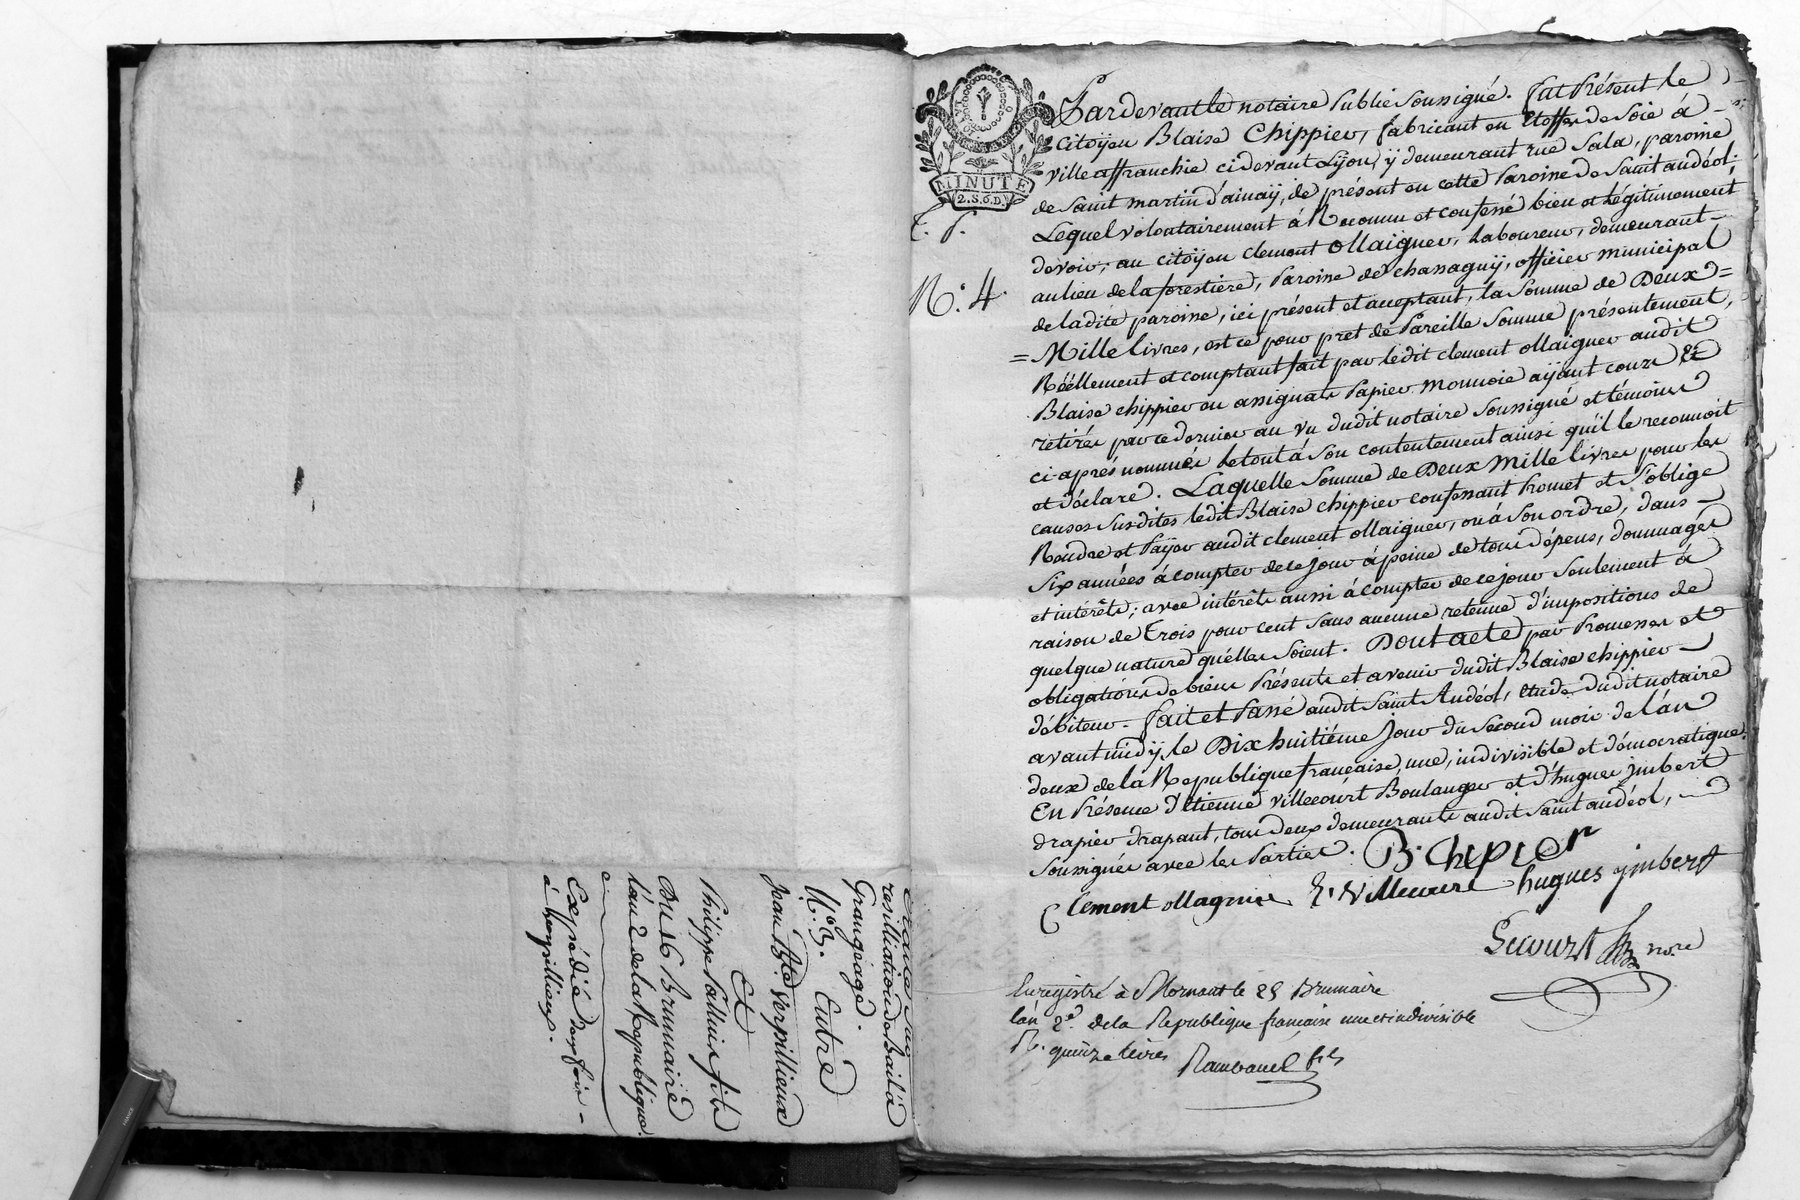 Traité sur
resilliation de Bail à
Grangéage.
N.° 3. Entre
Jean B.te Verpillieux
Et
Philippe Pallluis fils
Du 16 Brumaire
l'an 2 de la Republique.
Expédié
à Verpillieux.
MINUTE
2.S.6.D.
N.° 4.
Pardevant le notaire Public soussigné. fut Présent le
Citoÿen Blaise Chippier, fabricant en Etoffes de soie à
ville affranchie cidevant Lÿon, ÿ demeurant rue Sala, paroisse
de Saint martin d'ainaÿ, de présent en cette Paroisse de Saint andéol.
Lequel volontairement à Reconnu et confessé bien et légitimement
devoir, au citoÿen clement Ollaignier, laboureur, demeurant
au lieu de la forestiere, Paroisse de chassagnÿ, officier municipal
de ladite paroisse, ici présent et acceptant, la Somme de Deux=
=Mille livres, est ce pour pret de Pareille Somme présentement,
Réellement et comptant fait par ledit clement ollaignier audit
Blaise chippier en assignats Papier Monnoie aÿant cours Et
retirés par ce dernier au vu dudit notaire Soussigné et témoins
ci-après nommés le tout à Son contentement ainsi qu'il le reconnoit
et déclare. Laquelle Somme de Deux Mille livres pour les
causes Susdites ledit Blaise chippier confessant Promet et S'oblige
Rendre et Paÿer audit clement ollaignier, ou à Son ordre, dans
Six années à compter de ce jour à peine de tous dépens, dommages
et intérêts; avec intérêts aussi à compter de ce jour Seulement à
raison de Trois pour cent Sans aucune retenue d'impositions de
quelque nature qu'elles Soient. Dont acte par Promesses et
obligations de biens Présents et avenir dudit Blaise chippier
débiteur. fait et Passé audit Saint Andéol, etude dudit notaire
avant midÿ, le Dix huitième Jour du Second mois de l'an
deux de la Republique française, une, indivisible et démocratique.
En Présence d'Etienne Villecourt Boulanger et d'hugues jmbert
drapier drapant, tous deux demeurants audit Saint andéol,
Soussignés avec les Parties. B. Chipier
Clement ollagnier E. Villecourt hugues ymbert
Secourzt nore
Enregistré à Mornant le 25 Brumaire
l'an 2.e de la Republique francaise une et indivisible
R. quinze livres